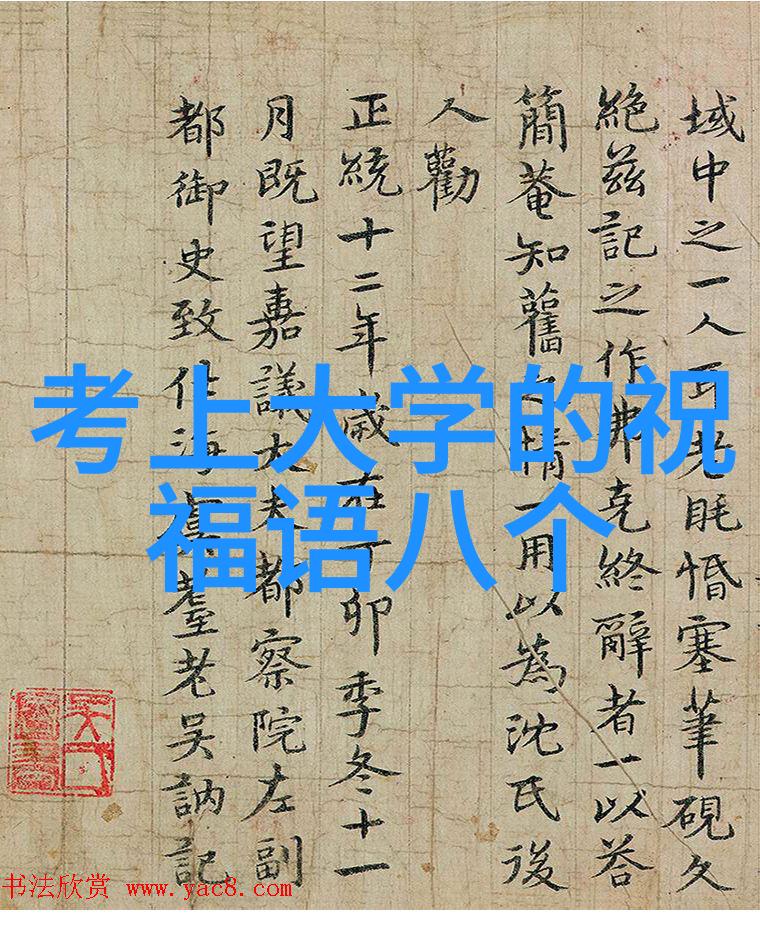 域中之一人耳老眊惛塞筆硯久
絶茲記之作弗克終辭者一以荅
簡菴知舊之情一用以為沈氏後
人勸
正統十二年歲在丁卯季冬十一
月既望嘉議大夫都察院左副
都御史致仕海虞耋老吳訥記
考上大学的祝
福语八个
书法欣赏 www.yac8.com